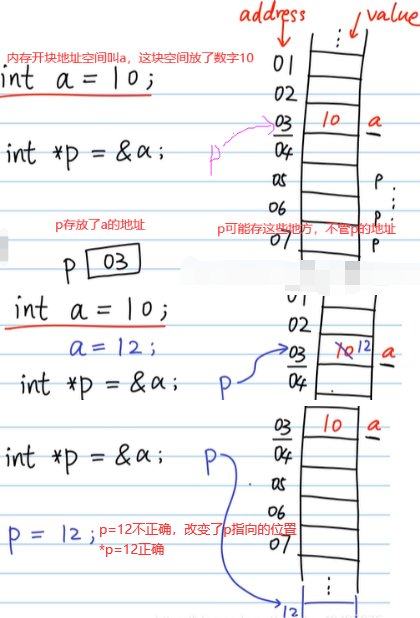 address
value
内存开块地址空间叫a，这块空间放了数字10
int a = 10;
01
02
03 10 a
int *p = &a;
p
04
05 p
06 p
p存放了a的地址
p可能存这些地方，不管p的地址
07 p
p 03
int a = 10;
01
02
a = 12;
03 10 12 a
int *p = &a;
p
04
03 10 a
int *p = &a;
p
04
05
06
p = 12;
p=12不正确，改变了p指向的位置
07
*p=12正确
12